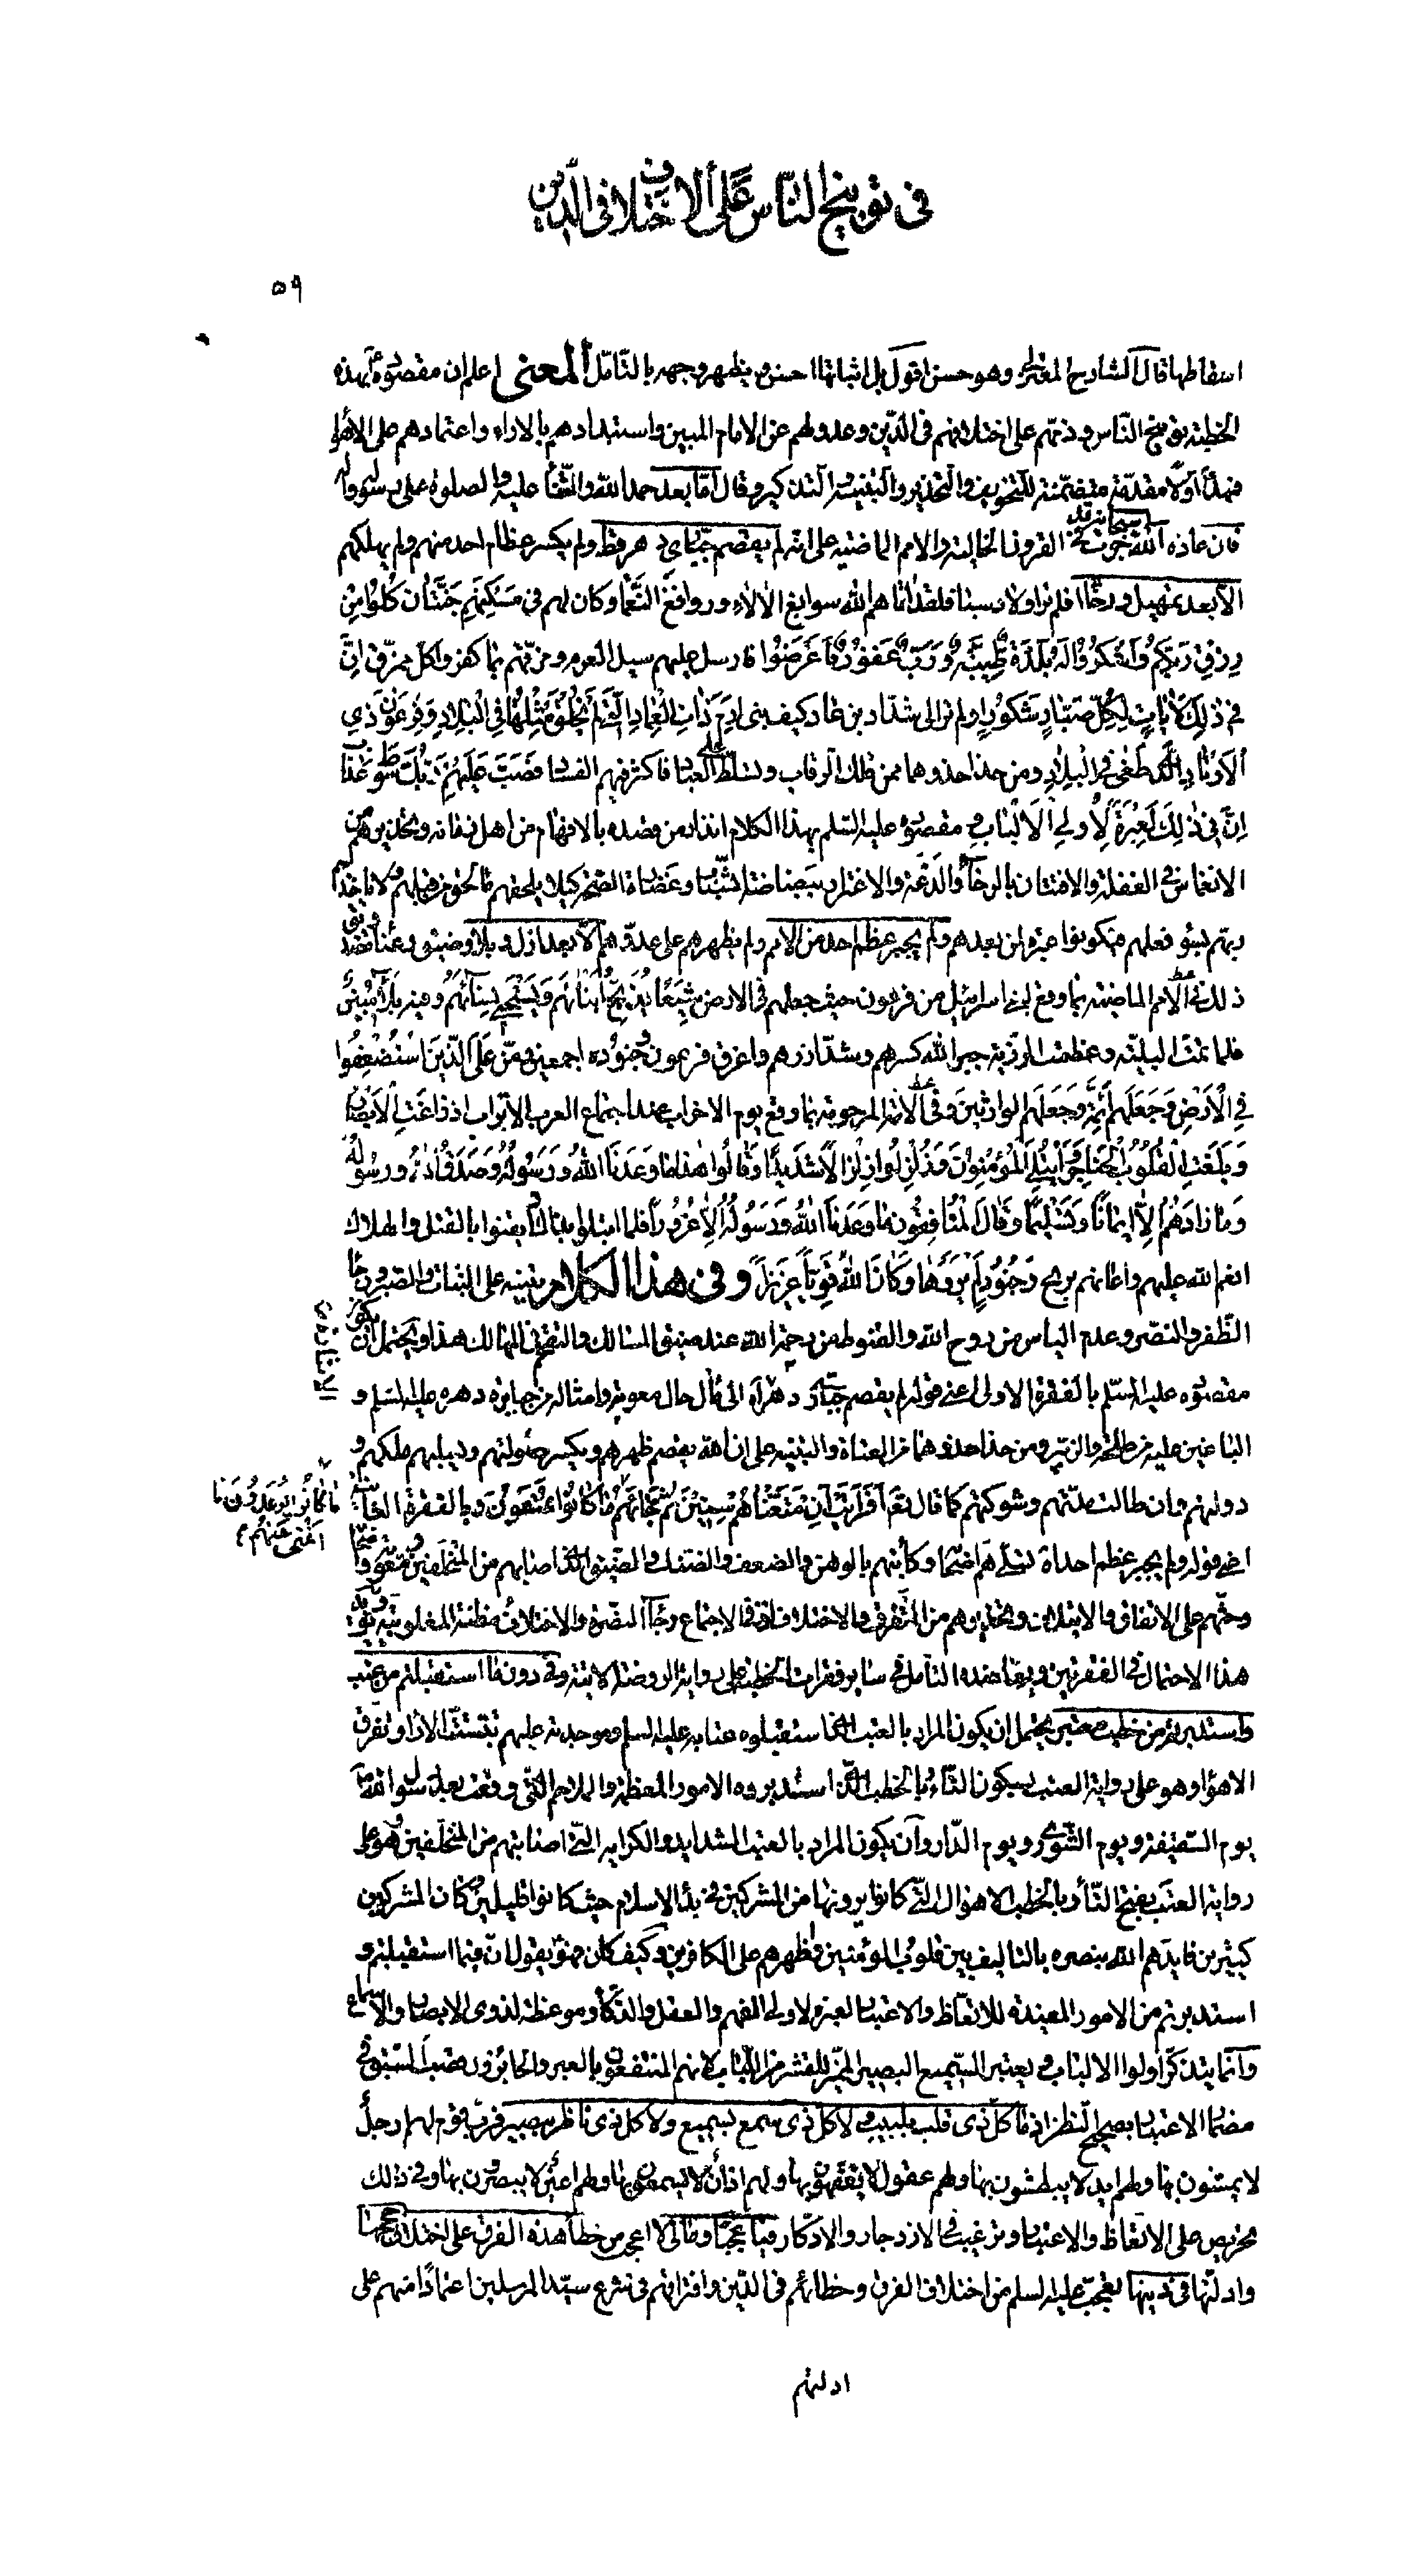 فى توبيخ الناس على الاختلاف فى الدين
٥٩
اسقاطها قال الشارح المعتزلى وهو حسن اقول بل اثباتها احسن ويظهر وجهه بالتامل المعنى اعلم ان مقصوده ع بهذه
الخطبة توبيخ الناس وذمهم على اختلافهم فى الدين وعدولهم عن الامام المبين واستبدادهم بالاراء واعتمادهم على الاهواء
فمهد اولا مقدمة متضمنة للتخويف والتحذير والتنبيه والتذكير وقال اما بعد حمد الله والثناء عليه والصلوة على رسوله وآله
فان عادة الله سبحانه قد جرت فى القرون الخالية والامم الماضية على انه لم يقصم جبارى دهر قط ولم يكسر عظام احد منهم ولم يهلكهم
الا بعد تمهيل ورخاء افلم تر اولاد سبا فلقد اتاهم الله سوابغ الآلاء وروافغ النعماء وكان لهم فى مسكنهم جنتان كلوا من
رزق ربكم واشكروا له بلدة طيبة ورب غفور فاعرضوا فارسل عليهم سيل العرم ومزقهم بما كفروا كل ممزق ان
فى ذلك لآيات لكل صبار شكور اولم تر الى شداد بن عاد كيف بنى ارم ذات العماد التى لم يخلق مثلها فى البلاد وفرعون ذى
الاوتاد الذى طغى فى البلاد ومن حذا حذوهما ممن ملك الرقاب وتسلط على العباد فاكثر فيهم الفساد فصب عليهم ربك سوط عذاب
ان فى ذلك لعبرة لاولى الالباب ومقصوده عليه السلم بهذا الكلام انذار من قصده بالافهام من اهل زمانه وتحذيرهم من
الانغماس فى الغفلة والافتتان بالرخاء والدعة والاغترار ببضاضة الشباب وغضارة الصحة كيلا يلحقهم ما لحق من قبلهم ولا ياخذهم
ربهم بسوء فعلهم فيكونوا عبرة لمن بعدهم ولم يجبر عظم احد من الامم ولم يظهرهم على عدوهم الا بعد ازل وبلاء وضيق وعناء وتصديق
ذلك فى الامم الماضية بما وقع لبنى اسرائيل من فرعون حيث جعلهم فى الارض شيعا يذبح ابنائهم ويستحيى نسائهم وفيه بلاء مبين
فلما تمت البلية وعظمت الرزية جبر الله كسرهم وشد ازرهم واغرق فرعون وجنوده اجمعين ومن على الذين استضعفوا
فى الارض وجعلهم ائمة وجعلهم الوارثين وفى الامة المرحومة بما وقع يوم الاحزاب عند اجتماع العرب الاتراب اذ زاغت الابصار
وبلغت القلوب الحناجر وابتلى المؤمنون وزلزلوا زلزالا شديدا وقالوا هذا ما وعدنا الله ورسوله وصدق الله ورسوله
وما زادهم الا ايمانا وتسليما وقال المنافقون ما وعدنا الله ورسوله الا غرورا فلما ابتلوا بذلك وايقنوا بالقتل والهلاك
انعم الله عليهم واعانهم بريح وجنود لم يروها وكان الله قويا عزيزا وفى هذا الكلام تنبيه على الثبات والصبر ورجاء
الظفر والنصر وعدم الياس من روح الله والقنوط من رحمة الله عند ضيق المسالك والتقحم فى المهالك هذا ويحتمل ان يكون
الاشارة فى
مقصوده عليه السلم بالفقرة الاولى اعنى قوله لم يقصم جبارى دهر آه الى مآل حال معوية وامثاله من جبابرة دهره عليه السلم و
الباغين عليه من طلحة والزبير ومن حذا حذوهما من العتاة والتنبيه على ان الله يقصم ظهرهم ويكسر صولتهم ويسلبهم ملكهم و
دولتهم وان طالت مدتهم وشوكتهم كما قال تعالى افرايت ان متعناهم سنين ثم جائهم ما كانوا يوعدون ما اغنى عنهم ما كانوا يمتعون وبالفقرة الثانية
اعنى قوله ولم يجبر عظم احد اه تسلى هم اصحابه وكأبتهم بالوهن والضعف والضنك والضيق الذى اصابهم من المتخلفين
وحثهم على الاتفاق والايتلاف وتحذيرهم من التفرق والاختلاف اذ فى الاجتماع رجاء النصرة والاختلاف مظنة المغلوبية ويؤيد
هذا الاحتمال فى الفقرتين ويعاضده التامل فى ساير فقرات الخطبة على رواية الروضة الاتية وفى دون ما استقبلتم من عتب
واستدبرتم من خطب معتبر يحتمل ان يكون المراد بالعتب الذى استقبلوه عتابه عليه السلم وموجدته عليهم بتشتت الاراء وتفرق
الاهواء وهو على رواية العتب بسكون التاء وبالخطب الذى استدبروه الامور المعظمة والملاحم التى وقعت بعد رسول الله ص من
يوم السقيفة ويوم الشورى ويوم الدار وان يكون المراد بالعتب الشدايد والكرايه التى اصابتهم من المتخلفين وهو على
رواية العتب بفتح التاء وبالخطب الاهوال التى كانوا يرونها من المشركين فى بدأ الاسلام حيث كانوا قليلين وكان المشركين
كثيرين فايدهم الله بنصره بالتاليف بين قلوب المؤمنين واظهرهم على الكافرين وكيف كان فهو يقول ان فيما استقبلتم و
استدبرتم من الامور المعبدة للاتعاظ والاعتبار لعبرة لاولى الفهم والعقل والذكاء وموعظة لذوى الابصار والاسماع
وانما يتذكر اولوا الالباب ويعتبر السميع البصير المميز للقشر من اللباب لانهم المنتفعون بالعبر والحائزون قصب السبق فى
مضمار الاعتبار بصحيح النظر اذ ما كل ذى قلب بلبيب ولا كل ذى سمع بسميع ولا كل ذى ناظر ببصير فرب قوم لهم ارجل
لا يمشون بها ولهم ايد لا يبطشون بها ولهم عقول لا يفقهون بها ولهم اذان لا يسمعون بها ولهم اعين لا يبصرون بها وفى ذلك
تحريص على الاتعاظ والاعتبار وترغيب فى الازدجار والادكار فيا عجبا ومالى لا اعجب من خطأ هذه الفرق على اختلاف حججها
وادلتها فى دينها تعجب عليه السلم من اختلاف الفرق وخطائهم فى الدين وافتراقهم فى شرع سيد المرسلين اعتمادا منهم على
ادلتهم